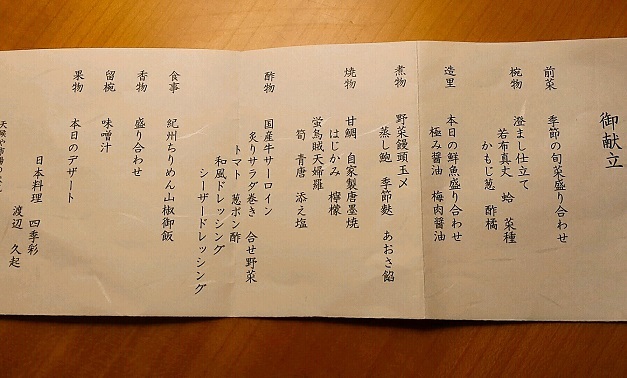 御献立
前菜
季節の旬菜盛り合わせ
椀物
澄まし仕立て
若布真丈 蛤 菜種
かもじ葱 酢橘
造里
本日の鮮魚盛り合わせ
極み醤油 梅肉醤油
煮物
野菜饅頭玉〆
蒸し鮑 季節麩 あおさ餡
焼物
甘鯛 自家製唐墨焼
はじかみ 檸檬
蛍烏賊天婦羅
筍 青唐 添え塩
酢物
国産牛サーロイン
炙りサラダ巻き 合せ野菜
トマト 葱ポン酢
和風ドレッシング
シーザードレッシング
食事
紀州ちりめん山椒御飯
香物
盛り合わせ
留椀
味噌汁
果物
本日のデザート
日本料理 四季彩
渡辺 久起